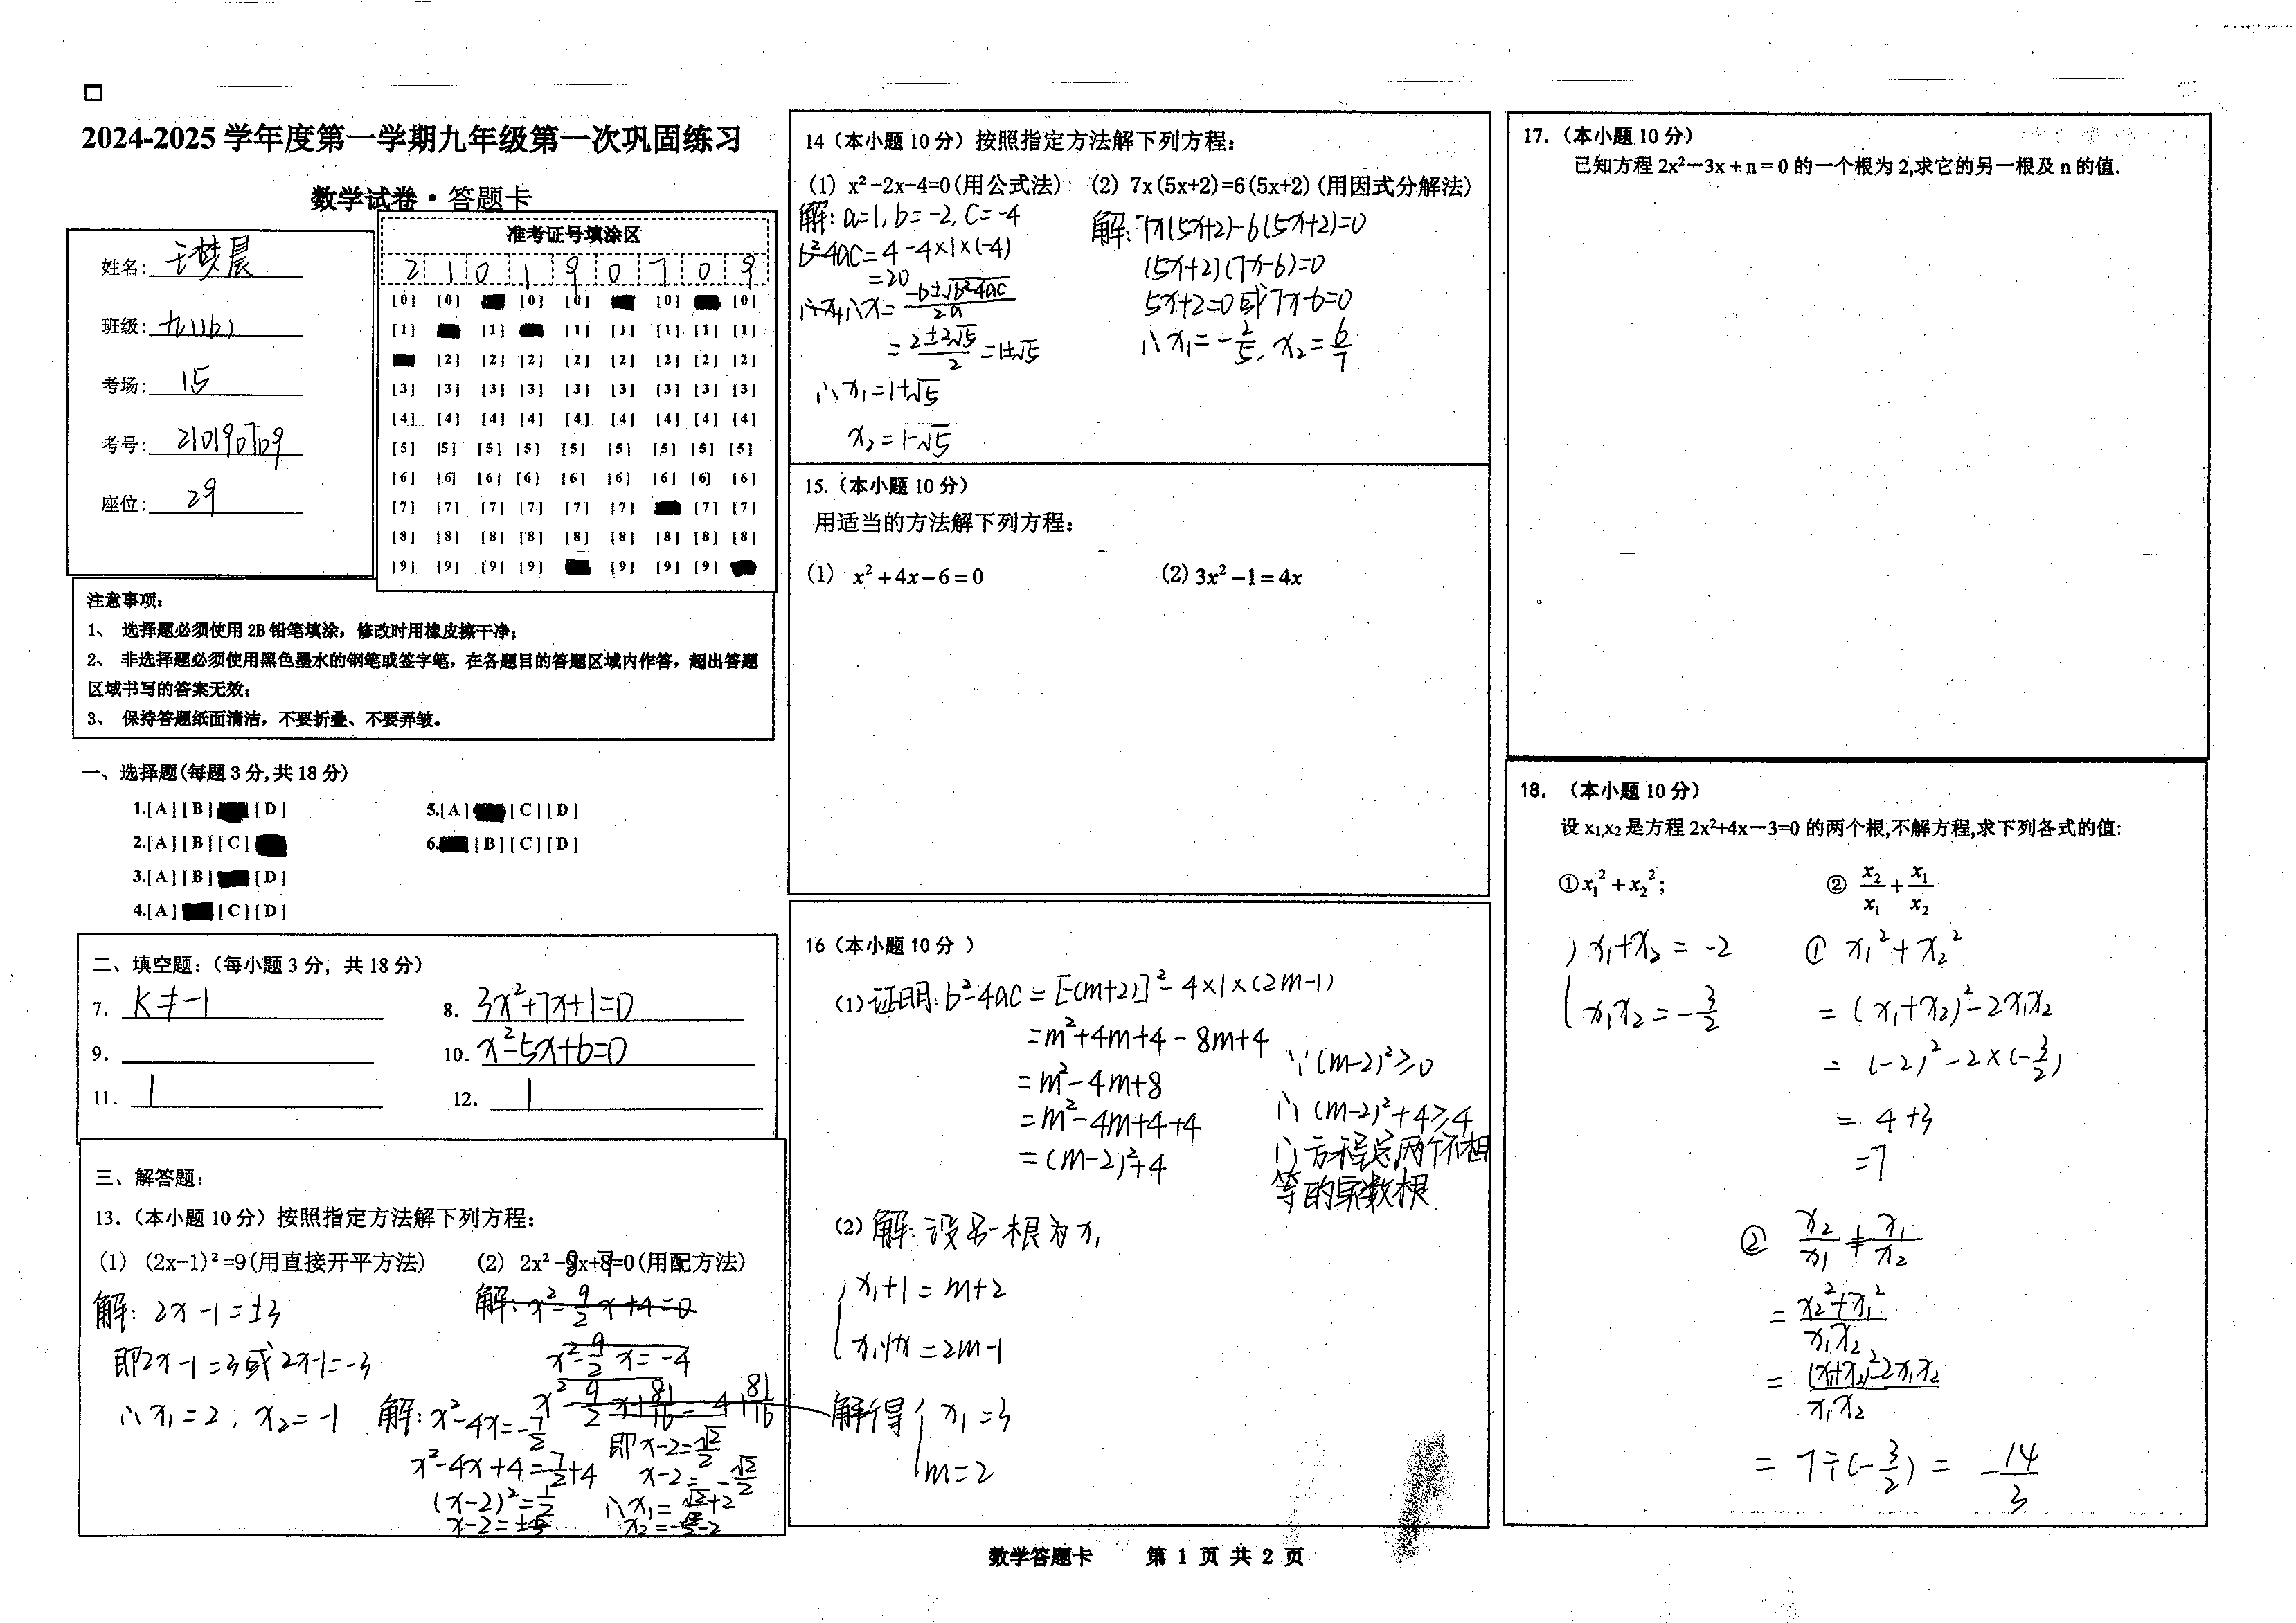 2024-2025 学年度第一学期九年级第一次巩固练习
数学试卷·答题卡
姓名:
班级:
考场: 15
考号: 210190709
座位: 29
准考证号填涂区
2 1 0 1 9 0 7 0 9
[0] [0] [0] [0] [0] [0]
[1] [1] [1] [1] [1] [1] [1]
[2] [2] [2] [2] [2] [2] [2] [2]
[3] [3] [3] [3] [3] [3] [3] [3] [3]
[4] [4] [4] [4] [4] [4] [4] [4] [4]
[5] [5] [5] [5] [5] [5] [5] [5] [5]
[6] [6] [6] [6] [6] [6] [6] [6] [6]
[7] [7] [7] [7] [7] [7] [7] [7]
[8] [8] [8] [8] [8] [8] [8] [8] [8]
[9] [9] [9] [9] [9] [9] [9]
注意事项:
1、 选择题必须使用 2B 铅笔填涂，修改时用橡皮擦干净；
2、 非选择题必须使用黑色墨水的钢笔或签字笔，在各题目的答题区域内作答，超出答题
区域书写的答案无效；
3、 保持答题纸面清洁，不要折叠、不要弄皱。
一、选择题(每题 3 分,共 18 分)
1.[A][B] [D] 5.[A] [C][D]
2.[A][B][C] 6. [B][C][D]
3.[A][B] [D]
4.[A] [C][D]
二、填空题:（每小题 3 分，共 18 分）
7. k≠-1 8. 3x²+7x+1=0
9. 10. x²-5x+6=0
11. 1 12. 1
三、解答题:
13.（本小题 10 分）按照指定方法解下列方程:
(1) (2x-1)²=9(用直接开平方法) (2) 2x²-8x+7=0(用配方法)
解: 2x-1=±3
即2x-1=3或2x-1=-3
∴x₁=2, x₂=-1
解: x²-9/2x+4=0
x²-9/2x=-4
x²-9/2x+81/16=4+81/16
解: x²-4x=-7/2
x²-4x+4=-7/2+4
(x-2)²=1/2
即x-2=√2/2
x-2=-√2/2
14（本小题 10 分）按照指定方法解下列方程:
(1) x²-2x-4=0(用公式法) (2) 7x(5x+2)=6(5x+2)(用因式分解法)
解: a=1, b=-2, c=-4
b²-4ac=4-4×1×(-4)
=20
∴x=(-b±√b²-4ac)/2a
=(2±2√5)/2=1±√5
∴x₁=1+√5
x₂=1-√5
解: 7x(5x+2)-6(5x+2)=0
(5x+2)(7x-6)=0
5x+2=0或7x-6=0
∴x₁=-2/5, x₂=6/7
15.（本小题 10 分）
用适当的方法解下列方程:
(1) x²+4x-6=0 (2) 3x²-1=4x
16（本小题 10 分 ）
(1) 证明: b²-4ac=[-(m+2)]²-4×1×(2m-1)
=m²+4m+4-8m+4
=m²-4m+8
=m²-4m+4+4
=(m-2)²+4
∵(m-2)²≥0
∴(m-2)²+4≥4
∴方程总两个不相
等的实数根.
(2) 解: 设另一根为x₁
{x₁+1=m+2
x₁·1=2m-1
解得{x₁=3
m=2
17.（本小题 10 分）
已知方程 2x²-3x+n=0 的一个根为 2,求它的另一根及 n 的值.
18. （本小题 10 分）
设 x₁,x₂ 是方程 2x²+4x-3=0 的两个根,不解方程,求下列各式的值:
①x₁²+x₂²; ② x₂/x₁+x₁/x₂
{x₁+x₂=-2
x₁x₂=-3/2
① x₁²+x₂²
=(x₁+x₂)²-2x₁x₂
=(-2)²-2×(-3/2)
=4+3
=7
② x₂/x₁+x₁/x₂
=(x₂²+x₁²)/x₁x₂
=((x₁+x₂)²-2x₁x₂)/x₁x₂
=7÷(-3/2)=-14/3
数学答题卡 第 1 页 共 2 页